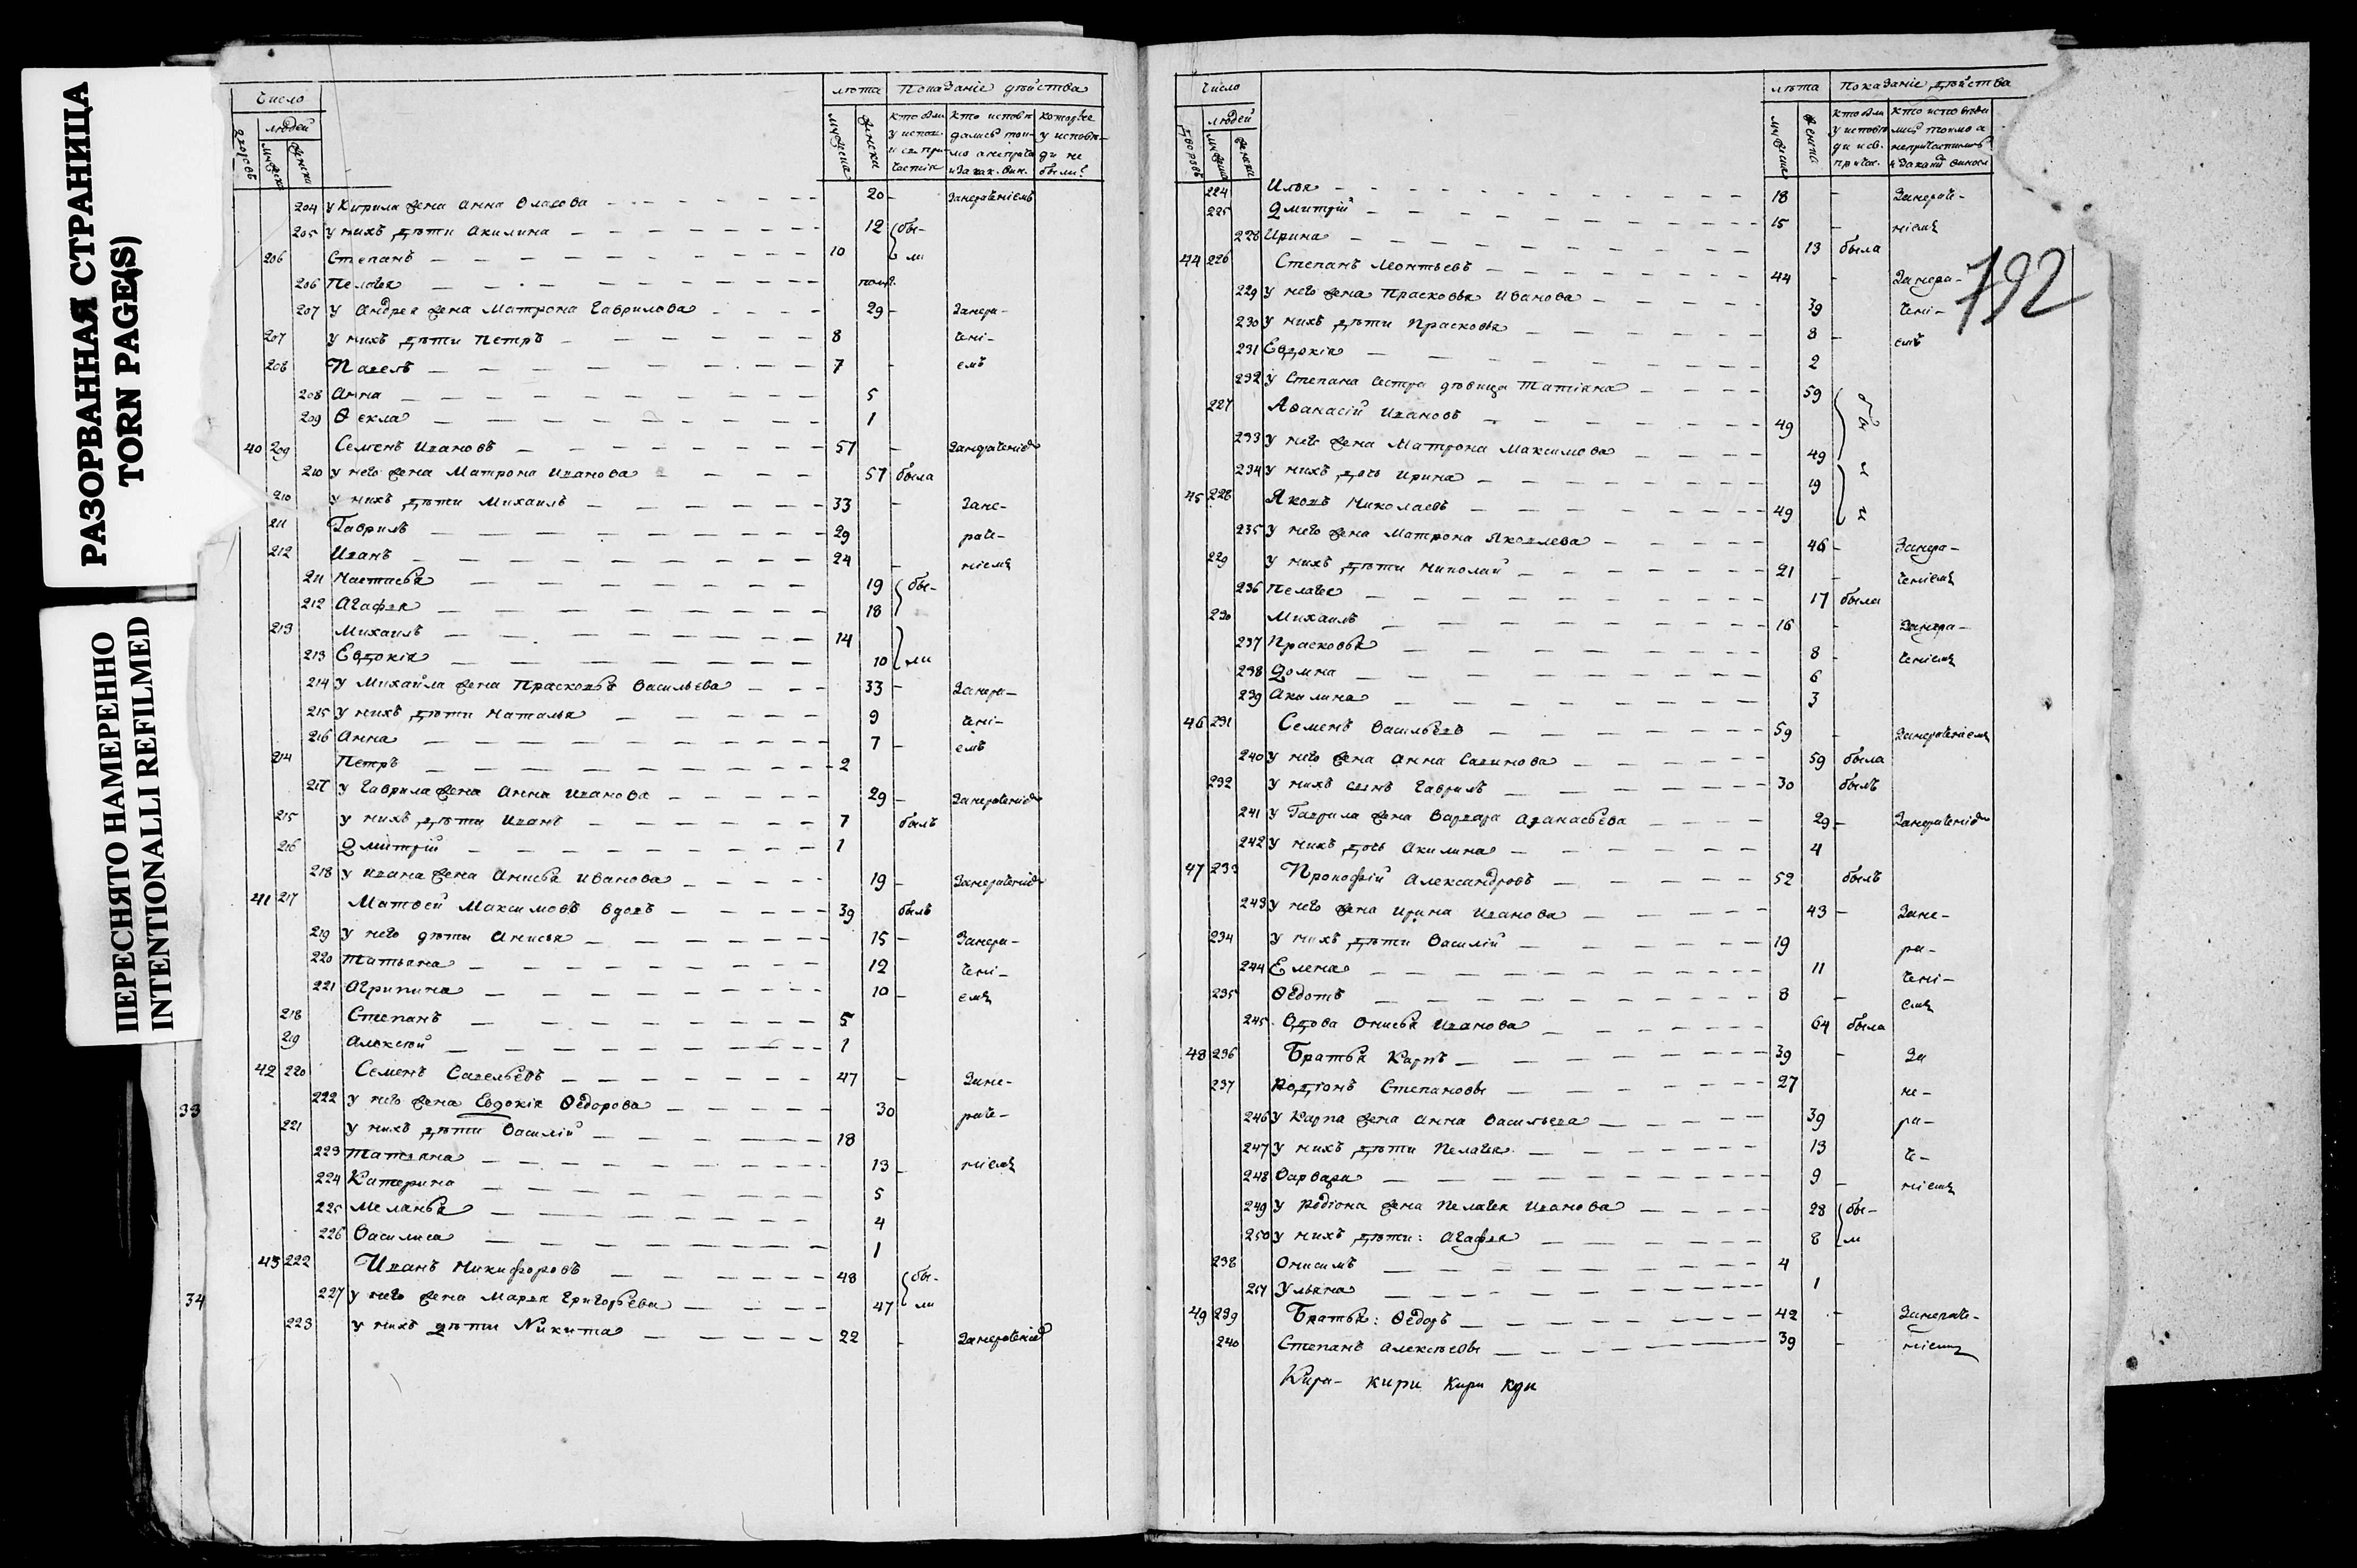 РАЗОРВАННАЯ СТРАНИЦА
TORN PAGE(S)
ПЕРЕСНЯТО НАМЕРЕННО
INTENTIONALLI REFILMED
Число
лѣта Показаніе дѣйства
людей
204 у Кирила жена Анна Власова 20 - Занераченіемъ
205 у нихъ дѣти Акилина 12 бы-
206 Степанъ 10 ли
206 Пелагея
207 у Андрея жена Матрона Гаврилова 29 - Занера-
207 у нихъ дѣти Петръ 8 чені-
208 Павелъ 7 - емъ
208 Анна 5
209 Ѳекла 1
40 209 Семенъ Ивановъ 57 - Занераченіемъ
210 у него жена Матрона Иванова 57 была
210 у нихъ дѣти Михаилъ 33 - Зане-
211 Гаврилъ 29 раче-
212 Иванъ 24 - ніемъ
211 Настасья 19 бы-
212 Агафья 18
213 Михаилъ 14
213 Евдокія 10 ли
214 у Михайла жена Прасковья Васильева 33 - Занера-
215 у нихъ дѣти Наталья 9 чені-
216 Анна 7 - емъ
214 Петръ 2
217 у Гаврила жена Анна Иванова 29 - Занераченіемъ
215 у нихъ дѣти Иванъ 7 былъ
216 Дмитрій 1
218 у Ивана жена Анисья Иванова 19 - Занераченіемъ
41 217 Матвей Максимовъ вдовъ 39 былъ
219 у него дѣти Анисья 15 - Занера-
220 Татьяна 12 чені-
221 Агрипина 10 - емъ
218 Степанъ 5
219 Алексѣй 1
42 220 Семенъ Савельевъ 47 - Зане-
33 222 у него жена Евдокія Ѳедорова 30 раче-
221 у нихъ дѣти Василій 18
223 Татьяна 13 - ніемъ
224 Катерина 5
225 Меланья 4
226 Василиса 1
43 222 Иванъ Никифоровъ 48 бы-
34 227 у него жена Марья Григорьева 47 ли
223 у нихъ дѣти Никита 22 - Занераченіемъ
Число
лѣта Показаніе дѣйства
людей
792
224 Илья 18 - Занераче-
225 Дмитрій 15 - ніемъ
228 Ирина 13 была
44 226 Степанъ Леонтьевъ 44 - Занера-
229 у него жена Прасковья Иванова 39 чені-
230 у нихъ дѣти Прасковья 8 - емъ
231 Евдокія 2
232 у Степана сестра дѣвица Татіяна 59
227 Аѳанасій Ивановъ 49
233 у него жена Матрона Максимова 49
234 у нихъ дочь Ирина 19
45 228 Яковъ Николаевъ 49
235 у него жена Матрона Яковлева 46 - Занера-
229 у нихъ дѣти Николай 21 - ченіемъ
236 Пелагея 17 была
230 Михаилъ 16 - Занера-
237 Прасковья 8 - ченіемъ
238 Домна 6
239 Акилина 3
46 231 Семенъ Васильевъ 59 - Занераченіемъ
240 у него жена Анна Савинова 59 была
232 у нихъ сынъ Гаврилъ 30 былъ
241 у Гаврила жена Варвара Аѳанасьева 29 - Занераченіемъ
242 у нихъ дочь Акилина 4
47 233 Прокофій Александровъ 52 былъ
243 у него жена Ирина Иванова 43 - Зане-
234 у нихъ дѣти Василій 19 ра-
244 Елена 11 чені-
235 Ѳедотъ 8 - емъ
245 Вдова Онисья Иванова 64 была
48 236 Братья Карпъ 39 - За
237 Родіонъ Степановы 27 не-
246 у Карпа жена Анна Васильева 39 ра-
247 у нихъ дѣти Пелагея 13 че-
248 Варвара 9 - ніемъ
249 у Родіона жена Пелагея Иванова 28 бы-
250 у нихъ дѣти: Агафья 8 ли
238 Онисимъ 4
251 Ульяна 1
49 239 Братья: Ѳедоръ 42 - Занераче-
240 Степанъ Алексѣевы 39 - ніемъ
Кири- кири Кири